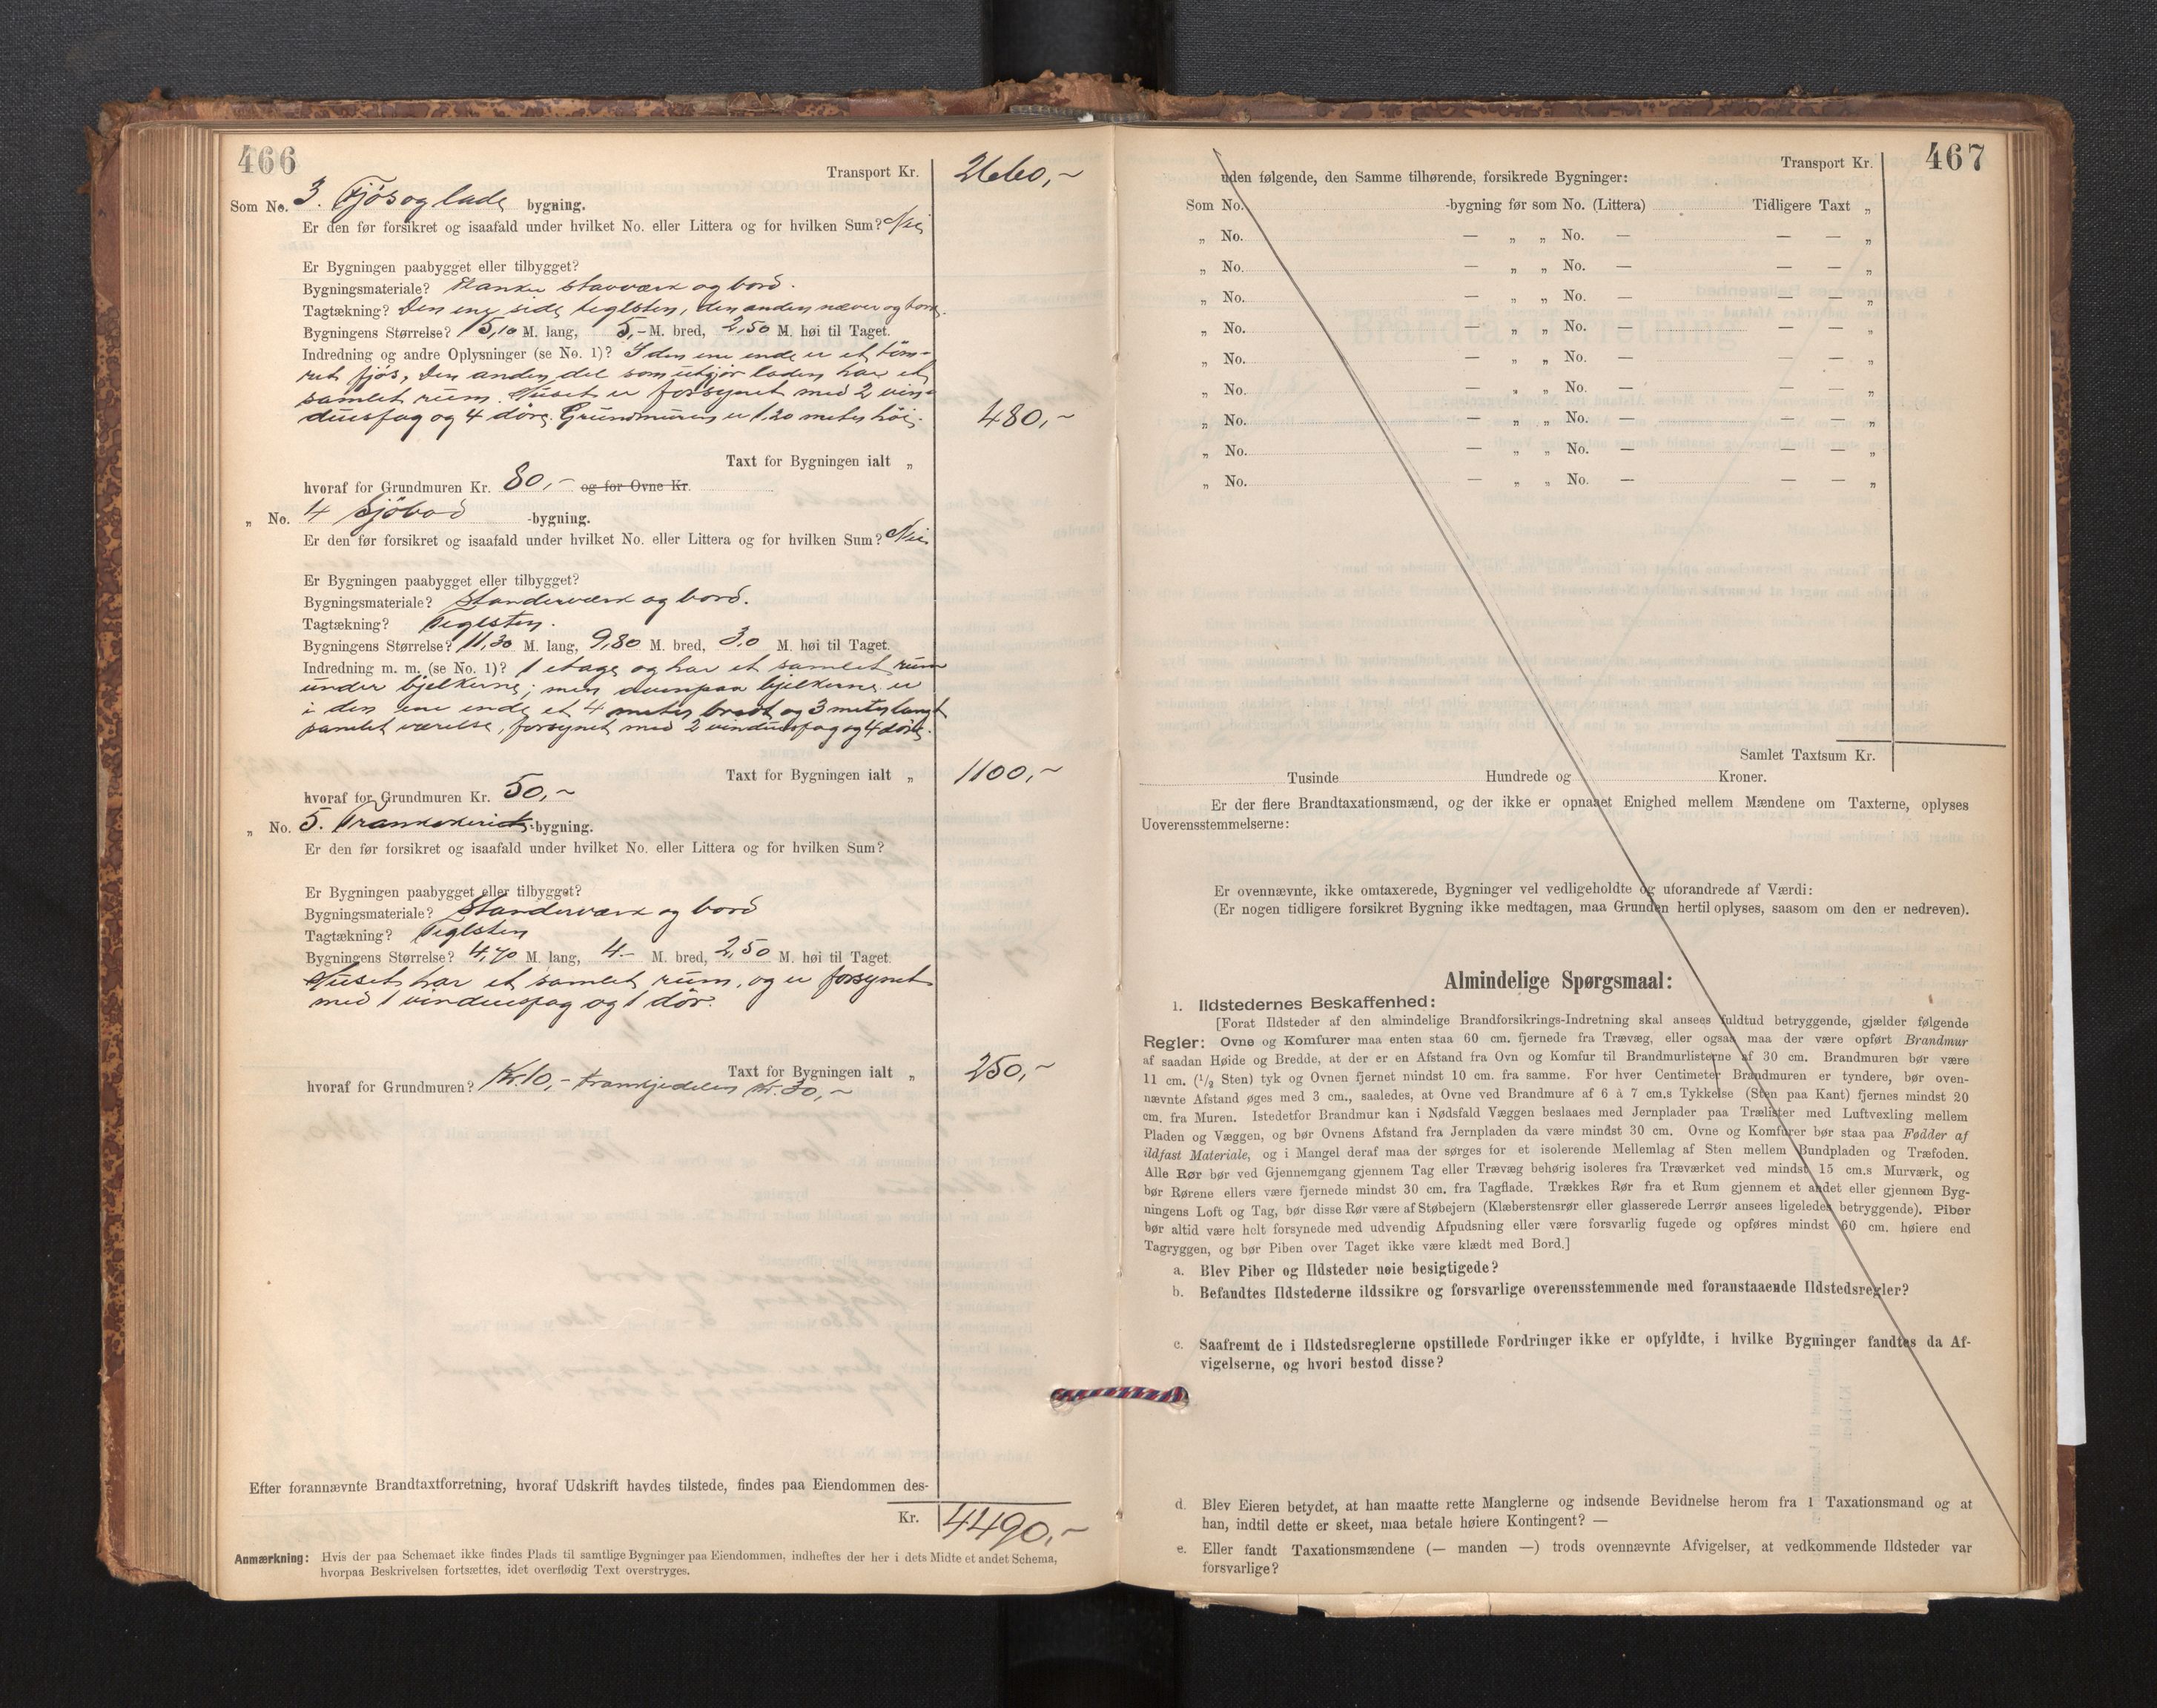 466
Transport Kr. 2660,-
Som No. 3. Fjøs og lade bygning.
Er den før forsikret og isaafald under hvilket No. eller Littera og for hvilken Sum? Nei
Er Bygningen paabygget eller tilbygget?
Bygningsmateriale? Planker stavværk og bord.
Tagtækning? Den ene side teglsten, den anden næver og bord.
Bygningens Størrelse? 15,10 M. lang, 5,- M. bred, 2,50 M. høi til Taget.
Indredning og andre Oplysninger (se No. 1)? I den ene ende er et töm-
ret fjös, Den anden del som utgjör laden har et
samlet rum. Huset er forsynet med 2 vin-
duesfag og 4 döre. Grundmuren er 1,20 meter höi.
480,-
Taxt for Bygningen ialt „
hvoraf for Grundmuren Kr. 80,- og for Ovne Kr.
„ No. 4 Sjöbod -bygning.
Er den før forsikret og isaafald under hvilket No. eller Littera og for hvilken Sum? Nei
Er Bygningen paabygget eller tilbygget?
Bygningsmateriale? Standerværk og bord.
Tagtækning? Teglsten.
Bygningens Størrelse? 11,30 M. lang, 9,80 M. bred, 3,0 M. høi til Taget.
Indredning m. m. (se No. 1)? 1 etage og har et samlet rum
under bjelkerne; men ovenpaa bjelkerne er
i den ene ende et 4 meter bredt og 3 meter langt
samlet værelse, forsynet med 2 vinduesfag og 4 döre.
Taxt for Bygningen ialt „ 1100,-
hvoraf for Grundmuren Kr. 50,-
„ No. 5. -bygning.
Er den før forsikret og isaafald under hvilket No. eller Littera og for hvilken Sum?
Er Bygningen paabygget eller tilbygget?
Bygningsmateriale? Standerværk og bord
Tagtækning? Teglsten
Bygningens Størrelse? 4,70 M. lang, 4.- M. bred, 2,50 M. høi til Taget.
Huset har et samlet rum, og er forsynet
med 1 vinduesfag og 1 dör.
Taxt for Bygningen ialt „ 250,-
hvoraf for Grundmuren? Kr. 10,- trankjedelen Kr. 30,-
Efter forannævnte Brandtaxtforretning, hvoraf Udskrift havdes tilstede, findes paa Eiendommen des-
Kr. 4490,-
Anmærkning: Hvis der paa Schemaet ikke findes Plads til samtlige Bygninger paa Eiendommen, indheftes der her i dets Midte et andet Schema,
hvorpaa Beskrivelsen fortsættes, idet overflødig Text overstryges.
467
Transport Kr.
uden følgende, den Samme tilhørende, forsikrede Bygninger:
Som No. -bygning før som No. (Littera) Tidligere Taxt „
„ No. — „ „ No. — — — „
„ No. — „ „ No. — — — „
„ No. — „ „ No. — — — „
„ No. — „ „ No. — — — „
„ No. — „ „ No. — — — „
„ No. — „ „ No. — — — „
„ No. — „ „ No. — — — „
„ No. — „ „ No. — — — „
„ No. — „ „ No. — — — „
Samlet Taxtsum Kr.
Tusinde Hundrede og Kroner.
Er der flere Brandtaxationsmænd, og der ikke er opnaaet Enighed mellem Mændene om Taxterne, oplyses
Uoverensstemmelserne:
Er ovennævnte, ikke omtaxerede, Bygninger vel vedligeholdte og uforandrede af Værdi:
(Er nogen tidligere forsikret Bygning ikke medtagen, maa Grunden hertil oplyses, saasom om den er nedreven).
Almindelige Spørgsmaal:
1. Ildstedernes Beskaffenhed:
[Forat Ildsteder af den almindelige Brandforsikrings-Indretning skal ansees fuldtud betryggende, gjælder følgende
Regler: Ovne og Komfurer maa enten staa 60 cm. fjernede fra Trævæg, eller ogsaa maa der være opført Brandmur
af saadan Høide og Bredde, at der er en Afstand fra Ovn og Komfur til Brandmurlisterne af 30 cm. Brandmuren bør være
11 cm. (1/2 Sten) tyk og Ovnen fjernet mindst 10 cm. fra samme. For hver Centimeter Brandmuren er tyndere, bør oven-
nævnte Afstand øges med 3 cm., saaledes, at Ovne ved Brandmure af 6 à 7 cm.s Tykkelse (Sten paa Kant) fjernes mindst 20
cm. fra Muren. Istedetfor Brandmur kan i Nødsfald Væggen beslaaes med Jernplader paa Trælister med Luftvexling mellem
Pladen og Væggen, og bør Ovnens Afstand fra Jernpladen da være mindst 30 cm. Ovne og Komfurer bør staa paa Fødder af
ildfast Materiale, og i Mangel deraf maa der sørges for et isolerende Mellemlag af Sten mellem Bundpladen og Træfoden.
Alle Rør bør ved Gjennemgang gjennem Tag eller Trævæg behørig isoleres fra Træværket ved mindst 15 cm.s Murværk, og
bør Rørene ellers være fjernede mindst 30 cm. fra Tagflade. Trækkes Rør fra et Rum gjennem et andet eller gjennem Byg-
ningens Loft og Tag, bør disse Rør være af Støbejern (Klæberstensrør eller glasserede Lerrør ansees ligeledes betryggende). Piber
bør altid være helt forsynede med udvendig Afpudsning eller være forsvarlig fugede og opføres mindst 60 cm. høiere end
Tagryggen, og bør Piben over Taget ikke være klædt med Bord.]
a. Blev Piber og Ildsteder nøie besigtigede?
b. Befandtes Ildstederne ildssikre og forsvarlige overensstemmende med foranstaaende Ildstedsregler?
c. Saafremt de i Ildstedsreglerne opstillede Fordringer ikke er opfyldte, i hvilke Bygninger fandtes da Af-
vigelserne, og hvori bestod disse?
d. Blev Eieren betydet, at han maatte rette Manglerne og indsende Bevidnelse herom fra 1 Taxationsmand og at
han, indtil dette er skeet, maa betale høiere Kontingent? —
e. Eller fandt Taxationsmændene (— manden —) trods ovennævnte Afvigelser, at vedkommende Ildsteder var
forsvarlige?